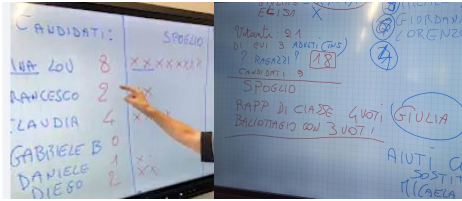 CANDIDATI:
SPOGLIO
LOU 8 XXXXXXXX
FRANCESCO 2
CLAUDIA 4
GABRIELE B 0
DANIELE 1 X
DIEGO 2 XX
ELISA X
GIORDANA
LORENZO
Votanti 21
DI CUI 3 ADULTI
? RAGAZZI? 18
CANDIDATI 9
SPOGLIO
RAPP DI CLASSE 4 VOTI
BALLOTTAGGIO CON 3 VOTI
GIULIA
AIUTI
SOSTIT
MICAELA